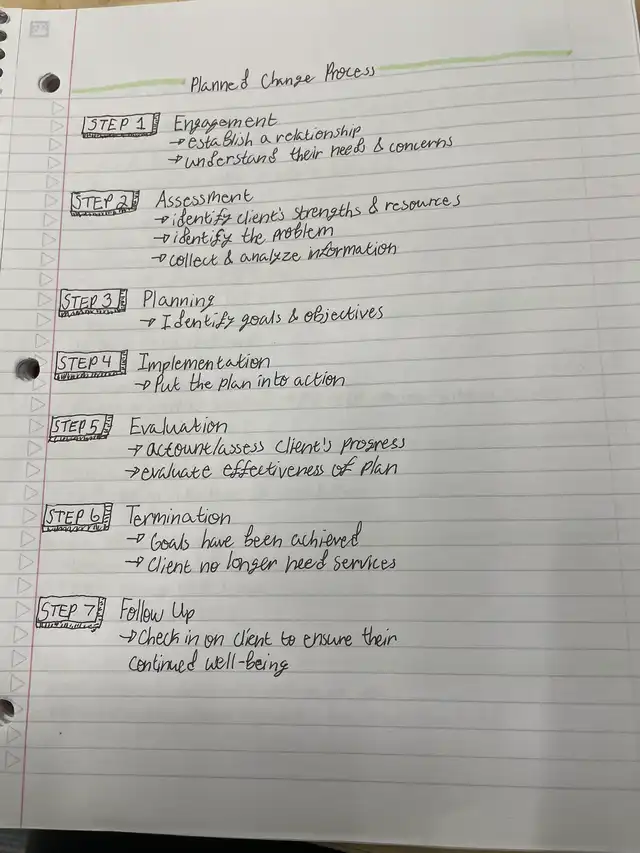 Planned Change Process
STEP 1 Engagement
→ establish a relationship
→ understand their needs & concerns
STEP 2 Assessment
→ identify client's strengths & resources
→ identify the problem
→ collect & analyze information
STEP 3 Planning
→ Identify goals & objectives
STEP 4 Implementation
→ Put the plan into action
STEP 5 Evaluation
→ account/assess client's progress
→ evaluate effectiveness of plan
STEP 6 Termination
→ Goals have been achieved
→ Client no longer need services
STEP 7 Follow Up
→ Check in on client to ensure their
continued well-being